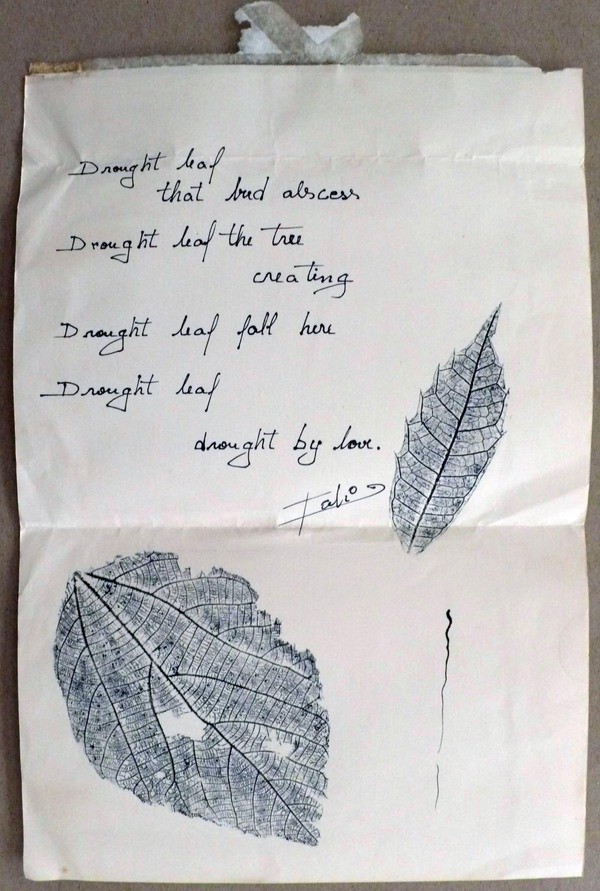 Drought leaf
that bud abscess
Drought leaf the tree
creating
Drought leaf fall here
Drought leaf
drought by love.